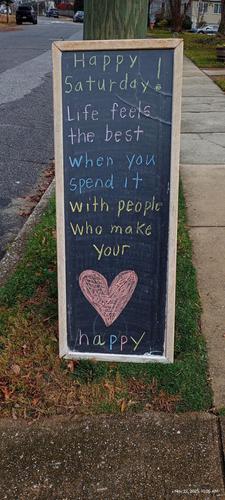 Happy
Saturday!
Life feels
the best
when you
spend it
with people
who make
your
happy
Nov 22, 2025, 10:05 AM